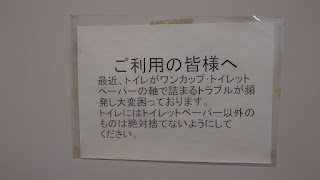 ご利用の皆様へ
最近、トイレがワンカップ・トイレット
ペーパーの軸で詰まるトラブルが頻
発し大変困っております。
トイレにはトイレットペーパー以外の
ものは絶対捨てないようにして
ください。